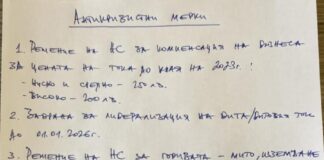 Антикризисни мерки
1. Решение на НС за компенсация на бизнеса
за цената на тока до края на 2023г.!
- Ниско и средно - 250 лв.
- Високо - 200 лв.
2. Забрана за либерализация на бита/битовия ток
до 01.01.2026г.
3. Решение на НС за горивата - мито, изземване